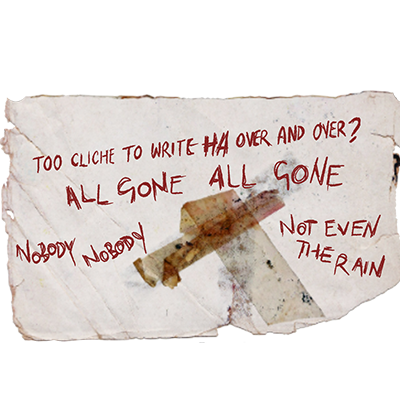 TOO CLICHE TO WRITE HA OVER AND OVER?
ALL GONE ALL GONE
NOBODY NOBODY
NOT EVEN
THE RAIN